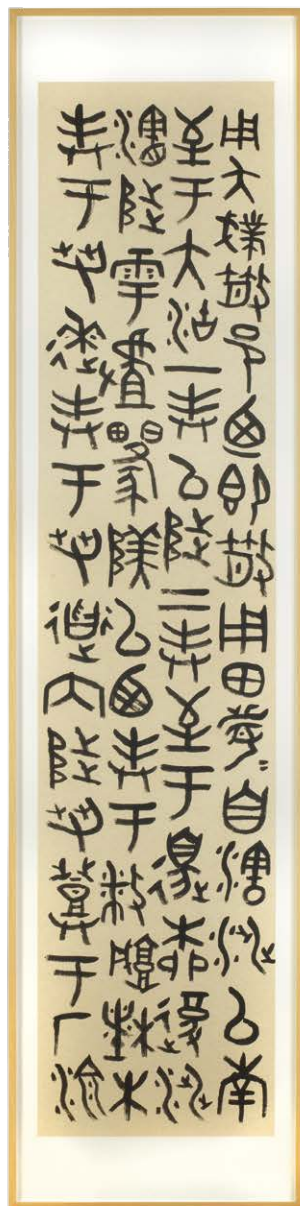 用夨撲散邑廼即散用田眉自瀗涉以南
至于大沽一封以陟二封至于邊柳復涉
瀗陟雩以西封于播城楮木
封于芻逨封于芻道內陟芻登于厂湶